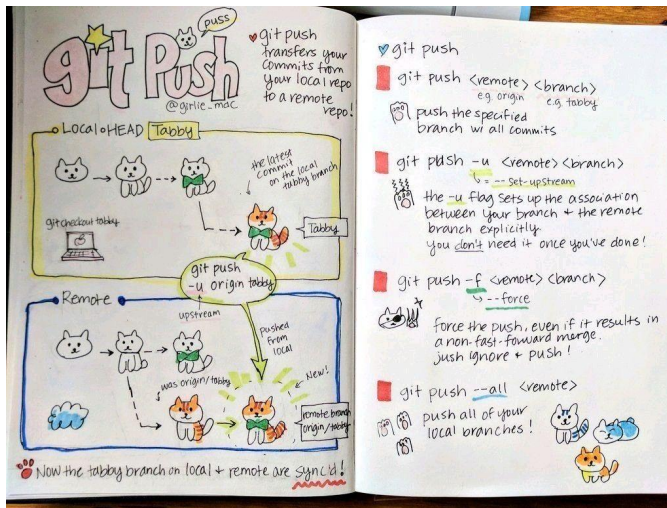 puss
git Push
@girlie_mac
git push
transfers your
commits from
your local repo
to a remote
repo!
Local HEAD Tabby
the latest
commit
on the local
tabby branch
git checkout tabby
Tabby
git push
-u origin tabby
upstream
Remote
pushed
from
local
was origin/tabby
New!
remote branch
origin/tabby
Now the tabby branch on local + remote are sync'd!
git push
git push <remote> <branch>
e.g. origin e.g. tabby
push the specified
branch w/ all commits
git push -u <remote> <branch>
= --set-upstream
the -u flag sets up the association
between your branch + the remote
branch explicitly
you don't need it once you've done!
git push -f <remote> <branch>
--force
force the push, even if it results in
a non-fast-forward merge.
just ignore + push!
git push --all <remote>
push all of your
local branches!